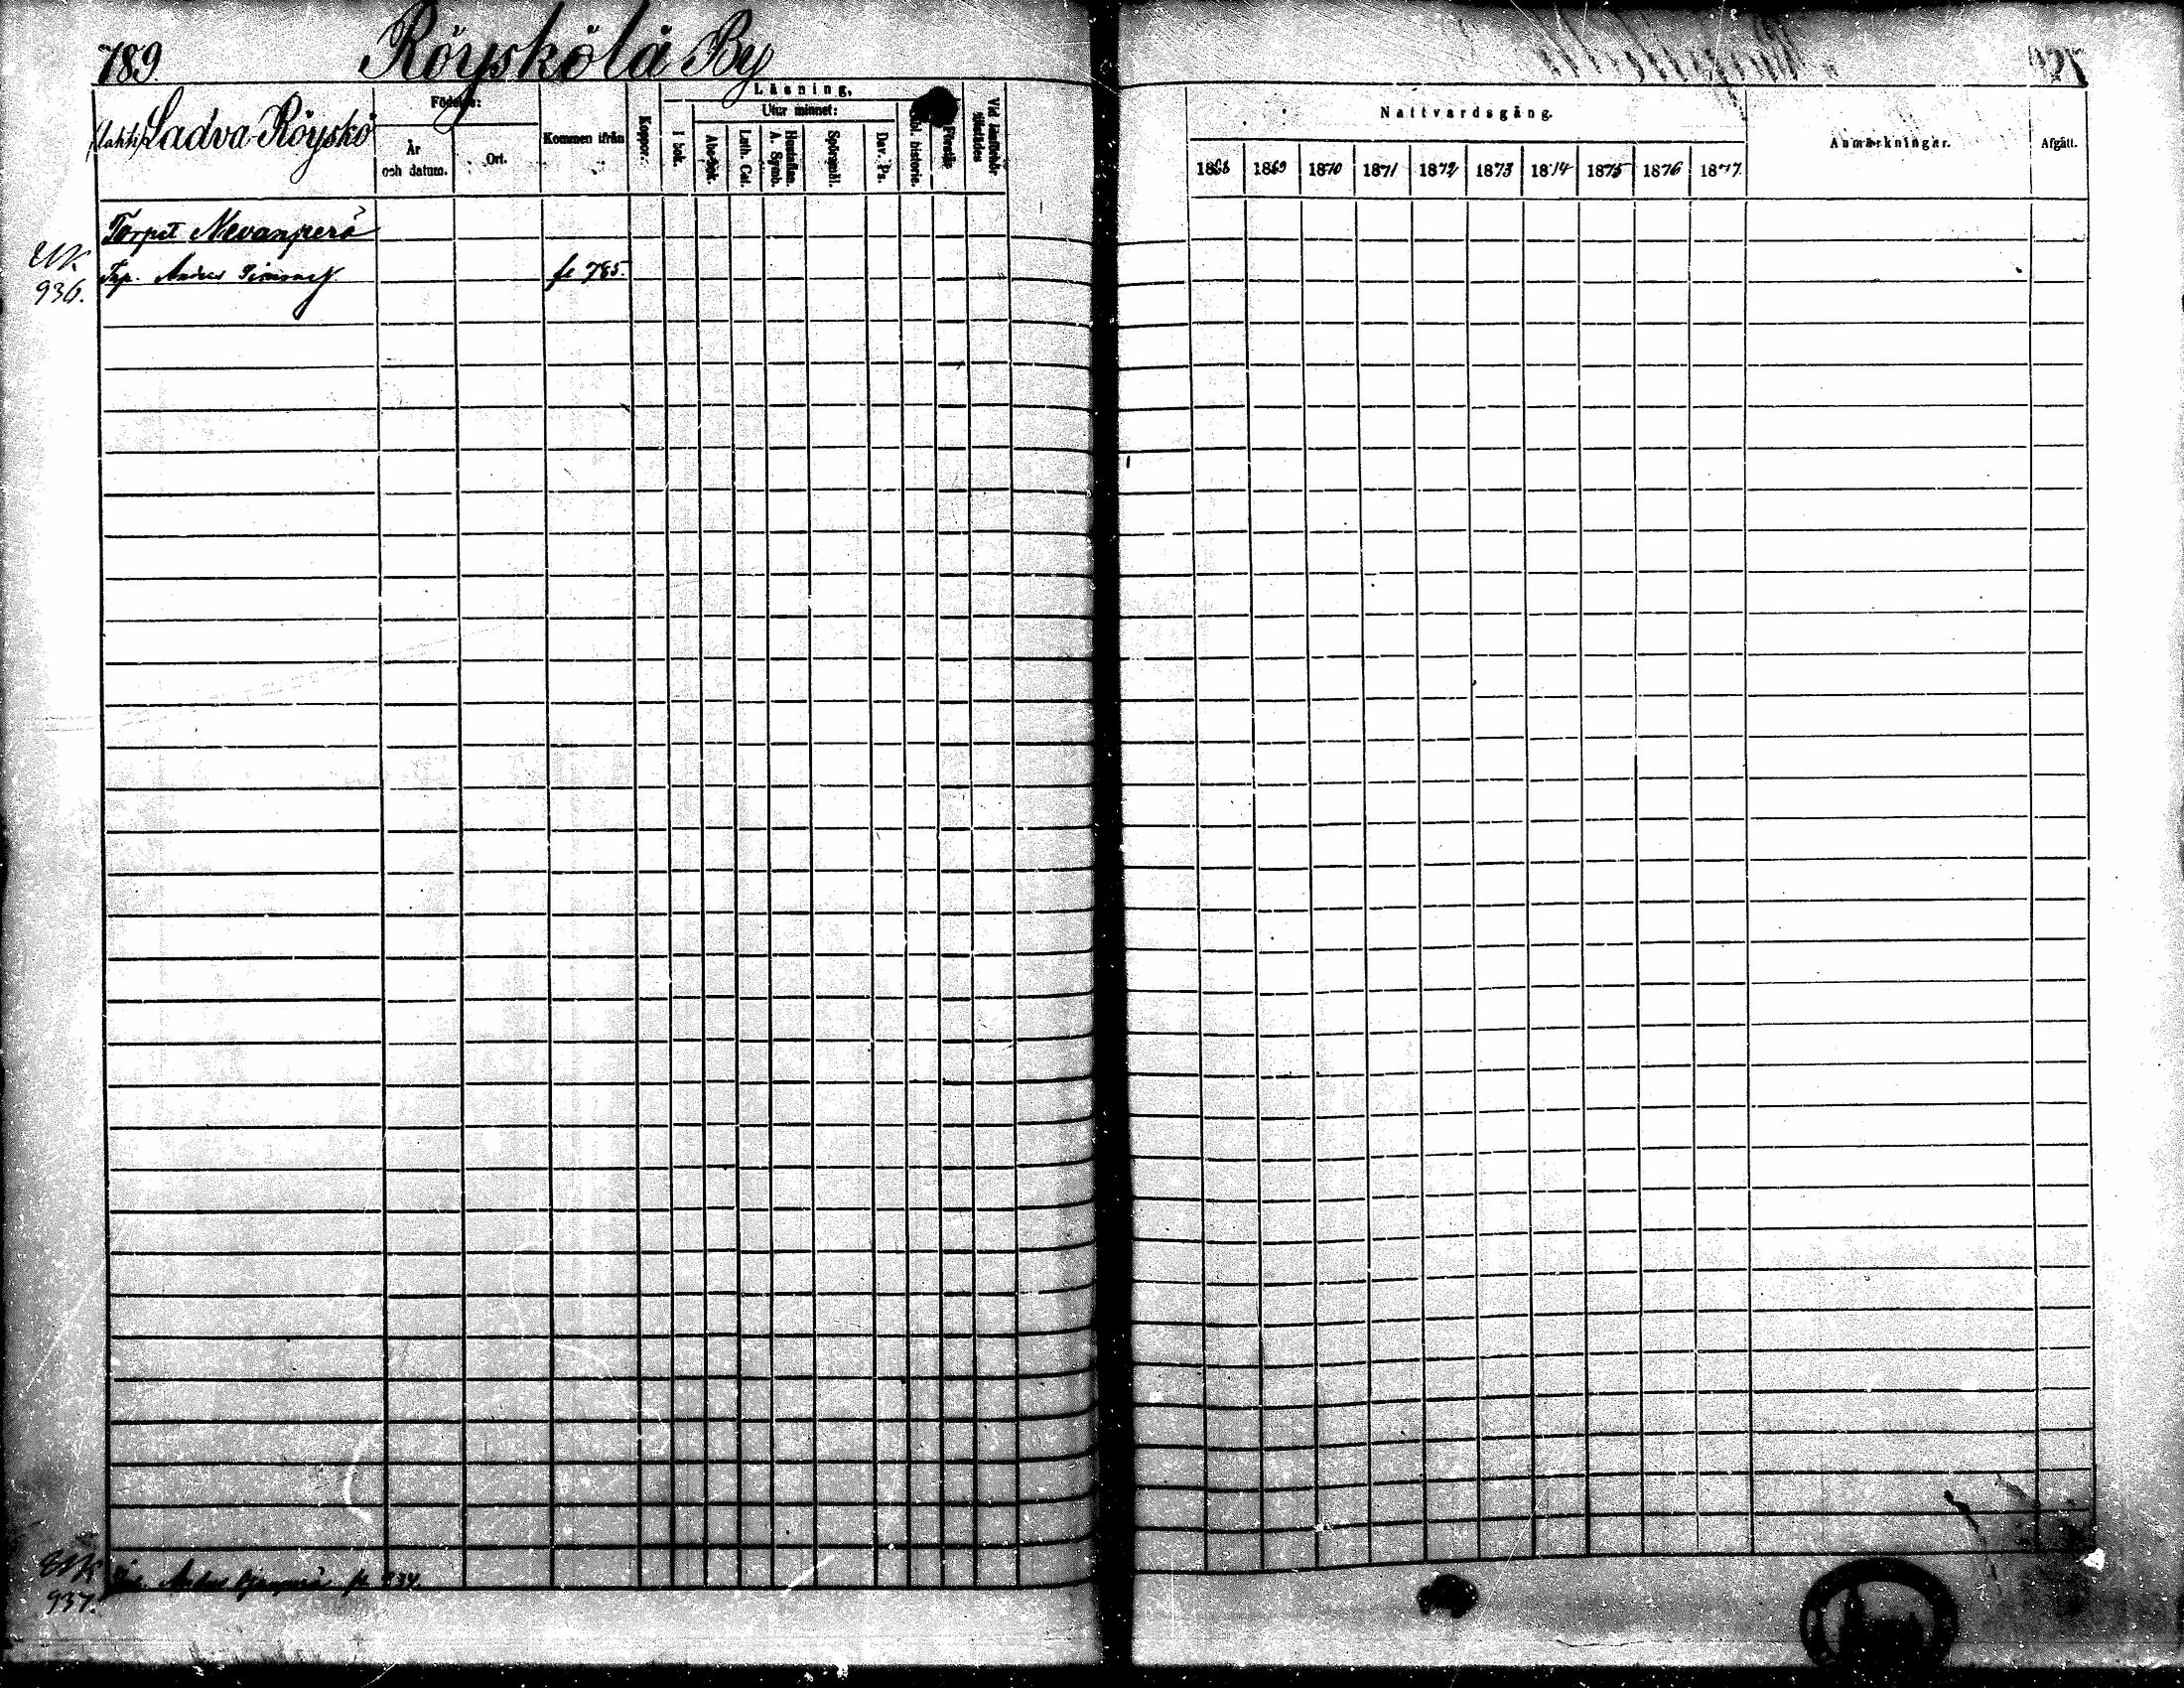 789 Röyskölä By
(Lahti) Ladva-Röyskö
Födelse:
År och datum.
Ort.
Kommen ifrån
Koppor.
Läsning,
I bok.
Utur minnet:
Abc-bok.
Luth. Cat.
Hustaflan. A. Symb.
Spörsmål.
Dav. Ps.
Bibl. historie.
Förstår
Vid läseförhör tillstädes
Nattvardsgång.
1868 1869 1870 1871 1872 1873 1874 1875 1876 1877
Anmärkningar.
Afgått.
Torpet Nevanperä
936. Trp. Anders fr 785.
937. Anders fr 934.